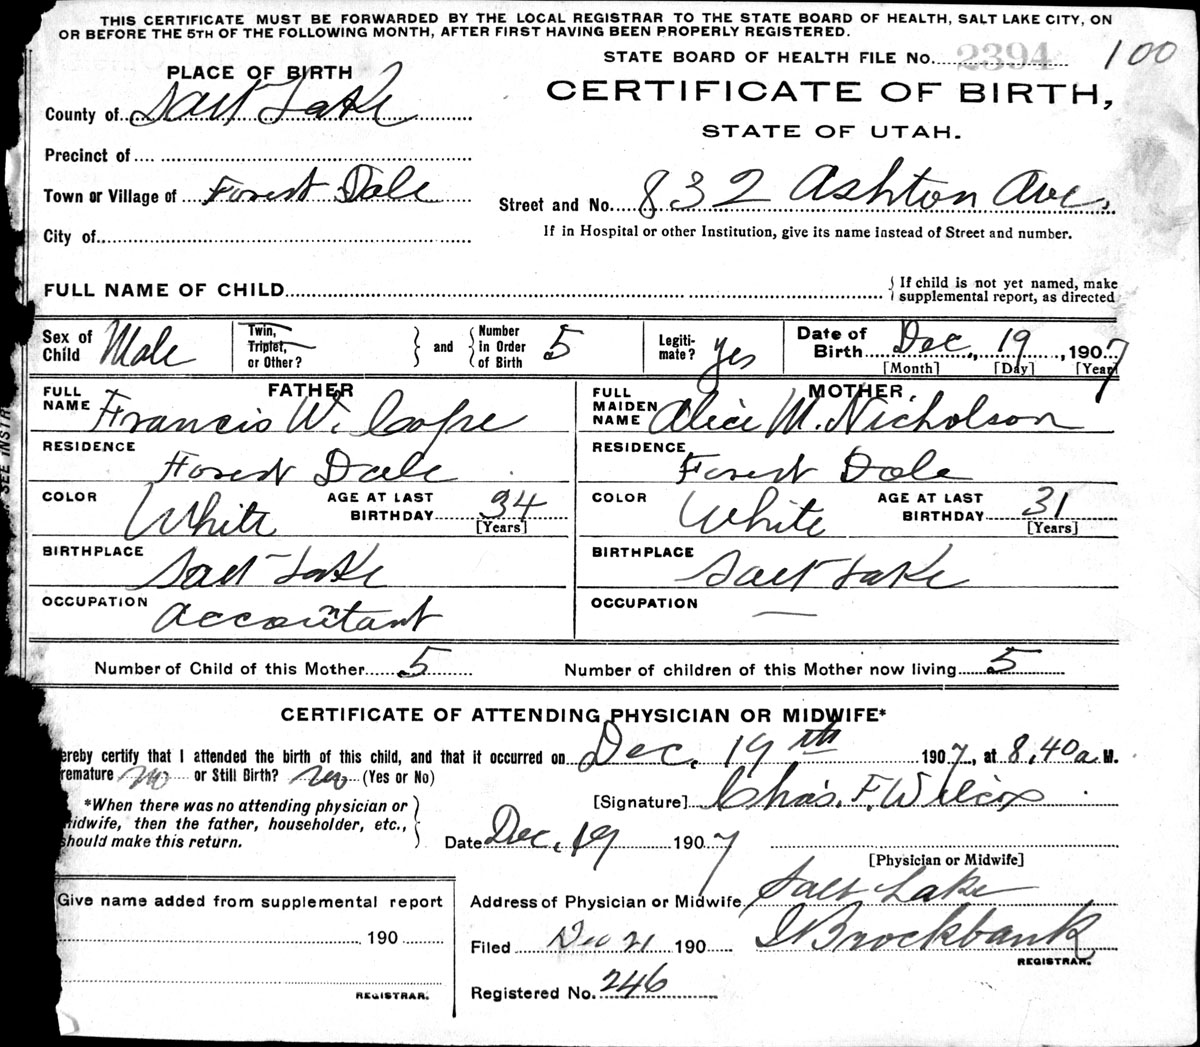 THIS CERTIFICATE MUST BE FORWARDED BY THE LOCAL REGISTRAR TO THE STATE BOARD OF HEALTH, SALT LAKE CITY, ON
OR BEFORE THE 5TH OF THE FOLLOWING MONTH, AFTER FIRST HAVING BEEN PROPERLY REGISTERED.
STATE BOARD OF HEALTH FILE No. 2394 100
PLACE OF BIRTH
CERTIFICATE OF BIRTH,
County of Salt Lake
STATE OF UTAH.
Precinct of
Town or Village of Forest Dale
Street and No. 832 Ashton Ave.
City of
If in Hospital or other Institution, give its name instead of Street and number.
FULL NAME OF CHILD { If child is not yet named, make
supplemental report, as directed
Sex of Child Male
Twin, Triplet, or Other? } and { Number in Order of Birth 5
Legiti- mate? yes
Date of Birth Dec., 19, 1907
[Month] [Day] [Year]
FATHER MOTHER
FULL NAME Francis W. Cope FULL MAIDEN NAME Alice M. Nicholson
RESIDENCE Forest Dale RESIDENCE Forest Dale
COLOR White AGE AT LAST BIRTHDAY 34 [Years] COLOR White AGE AT LAST BIRTHDAY 31 [Years]
BIRTHPLACE Salt Lake BIRTHPLACE Salt Lake
OCCUPATION Accountant OCCUPATION —
Number of Child of this Mother 5 Number of children of this Mother now living 5
CERTIFICATE OF ATTENDING PHYSICIAN OR MIDWIFE*
ereby certify that I attended the birth of this child, and that it occurred on Dec. 19th 1907, at 8,40 a M.
remature no or Still Birth? no (Yes or No)
*When there was no attending physician or
idwife, then the father, householder, etc.,
should make this return.
[Signature] Chas. F. Wilcox
Date Dec. 19 1907
[Physician or Midwife]
Give name added from supplemental report
190
REGISTRAR.
Address of Physician or Midwife Salt Lake
Filed Dec 21 190 Brockbank
REGISTRAR.
Registered No. 246
SEE INSTR